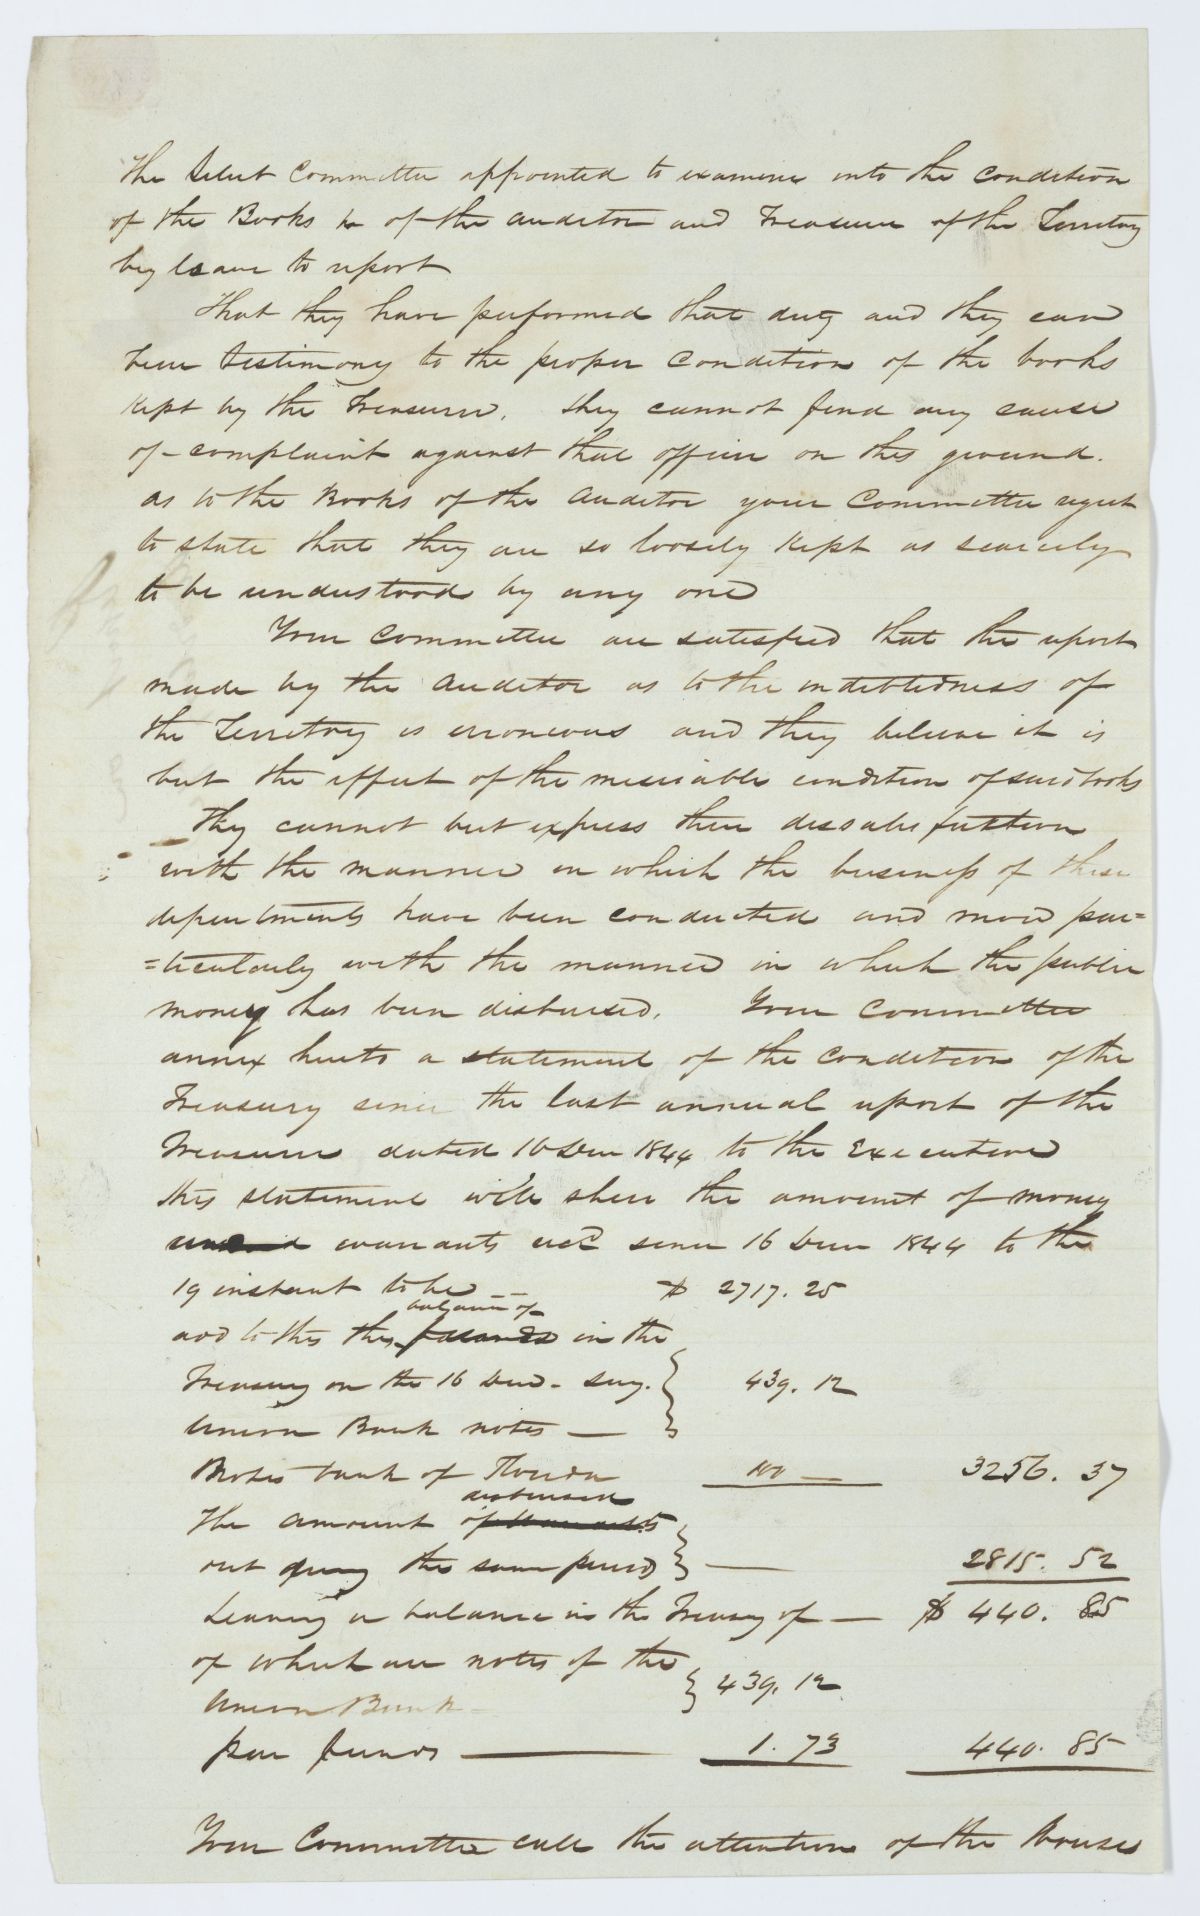 The Select Committee appointed to examine into the condition
of the Books &c of the Auditor and Treasurer of the Territory
beg leave to report
That they have performed that duty and they can
bear testimony to the proper condition of the books
kept by the Treasurer. They cannot find any cause
of complaint against that officer on this ground.
As to the Books of the Auditor your Committee regret
to state that they are so loosely kept as scarcely
to be understood by any one
Your Committee are satisfied that the report
made by the Auditor as to the indebtedness of
the Territory is erroneous and they believe it is
but the effect of the miserable condition of said books
They cannot but express their dissatisfaction
with the manner in which the business of these
departments have been conducted and more par=
=ticularly with the manner in which the public
money has been disbursed. Your Committee
annex hereto a statement of the condition of the
Treasury since the last annual report of the
Treasurer dated 16 Decr 1844 to the Executive
this statement will shew the amount of money
warrants recd since 16 Decr 1844 to the
19 instant to be -- $ 2717.25
balance of
add to this the in the
Treasury on the 16 Decr - say. } 439.12
Union Bank notes —
Notes bank of Florida 100 — 3256.37
disbursed
The amount of warrants
out during the same period } — 2815.52
Leaving a balance in the Treasury of — $ 440.85
of which are notes of the
Union Bank } 439.12
par funds — 1.73 440.85
Your Committee call the attention of the House